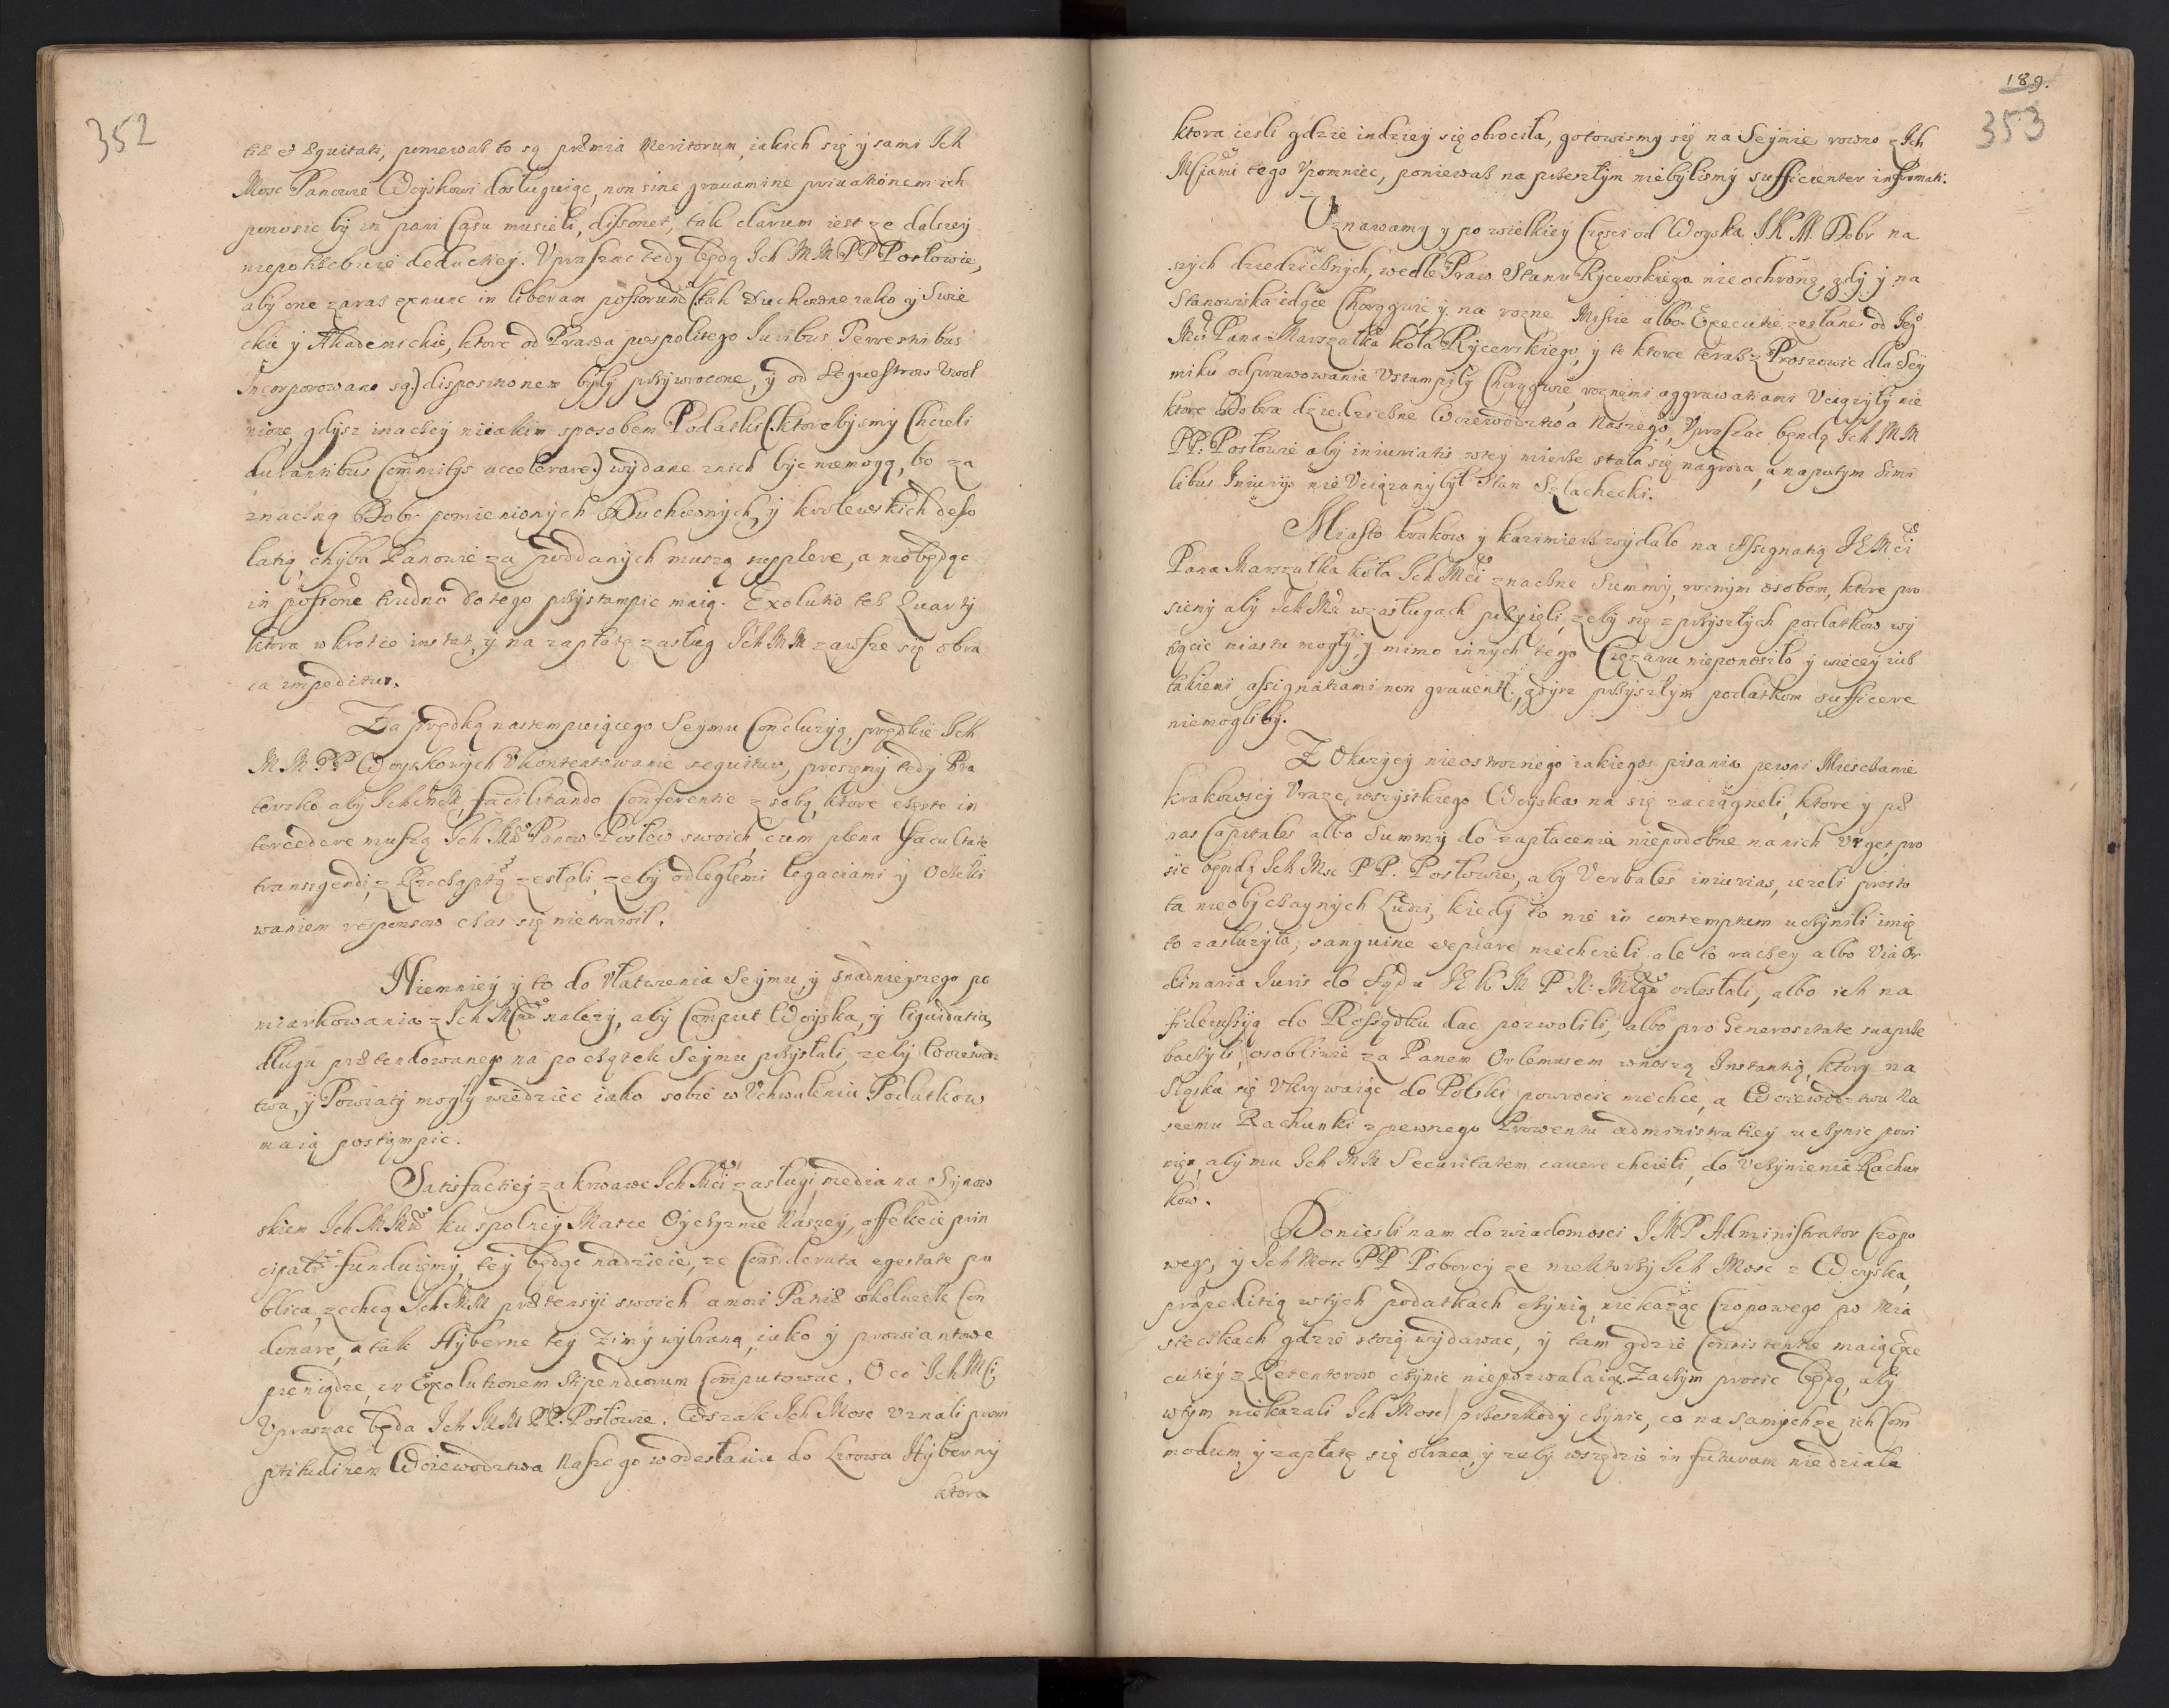 352
tiæ et æquitati, poniewaß to są præmia Meritorum, iakich się y sami Ich
Mosc Panowie Woyskowi dosługuiąc, non sine gravamine privationem ich
ponosic by in pari Casu musieli, dissonet, tak clarum iest ze dalszey
niepotrzebuie deductiey. Vpraszac tedy będą Ich MM PPP Posłowie,
aby one zaraß exnunc in liberam possorum (tak Duchowne iako y Swie
ckie y Akademickie, ktore od Prawa pospolitego Iuribus Terrestribus
Incorporowane są) dispositionem były przywrocone, y od Sequestrow Uwol
nione, gdysz inaczey nieiakim sposobem Podatki (ktorebysmy Chcieli
durantibus Comitijs accelerare) wydane znich byc niemogą, bo za
znaczną Dobr pomienionych Duchownych, y krolewskich deso
latią, chyba Panowie za poddanych muszą supplere, a niebędąc
in possione trudno do tego przystampic maią. Exolutio teß Quarty
ktora wkrotce instat, y na zapłatę zasług Ich MM zawsze się obra
ca impeditur.
Za prędką nastempuiącego Seymu Conclusyą, prędkie Ich
MM PP Woyskowych Ukontentowanie sequitur, prosiemy tedy Bra
tersko aby Ich MM, facilitando Conferentie z sobą, ktore często in
tercedere muszą Ich Msc Panow Posłow swoich, cum plena facultate
transigendi, z Rzecząptą zesłali, zeby odległemi legaciami y Oczeki
waniem responsow czas się nietrawił.
Niemniey y to do Ułatwienia Seymu, y snadnieyszego po
miarkowania z Ich Mciami nalezy, aby Comput Woyska, y liquidatią
długu prætendowanego na początek Seymu przysłali, zeby Woiewodz
twa, y Powiaty mogły wiedziec iako sobie w Uchwaleniu Podatkow
maią postąmpic.
Satisfactiey za krwawe Ich Mci zasługi media na Synow
skiem Ich MMci ku spolney Matce Oyczyznie Naszey, affekcie prin
cipalr funduiemy, tey będąc nadzieie, ze Considerata egestate pu
blica, zechcą Ich MM prætensyi swoich amori Patriæ cokolwiek Con
donare, a tak Hyberne tey Zimy wybraną, iako y prowiantowe
pieniądze, in Exolutionem stipendiorum Computowac. O co Ich Mci
Upraszac będa Ich MM PP. Posłowie. Wszak Ich Mosc Uznali prom
ptitudinem Woiewodztwa Naszego wodesłaniu do Lwowa Hyberny
ktora
189.
353
ktora iesli gdzie indziey się obrociła, gotowismy się na Seymie rowno z Ich
Msciami tego Upomniec, poniewaß na przeszłym niebylismy sufficienter informati.
Uznawamy y po wielkiey Części od Woyska JKM. Dobr na
szych dziedzicznych, wedle Praw Stanu Rycerskiego nieochronę, gdy y na
Stanowiska idące Chorągwie y na rozne Missie albo Executie zesłane od Jego
Mci Pana Marszałka koła Rycerskiego, y te ktore teraß z Proszowic dla Sey
miku odprawowania Ustampiły Chorągwie, roznemi aggrawatiami Uciązyły nie
ktore Dobra dziedziczne Woiewodztwa Naszego, Upraszac będą Ich MM
PP. Posłowie aby iniuriatis wtey mierze stała się nagroda, a napotym Simi
libus Iniurijs nie Uciązany był Stan Szlachecki.
Miasto krakow y kazimierz wydało na Assignatią JE Mci
Pana Marszałka koła Ich Mci znaczne Summy, roznym osobom, ktore pro
siemy aby Ich Msc wzasługach przyięli, zeby się z przyszłych podatkow wy
tchnąc miastu mogły y mimo innych tego Cięzaru nieponosiło y więcey iuß
takiemi assignatiami non gravent., gdysz przyszłym podatkom sufficere
niemogliby.
Z Okazyey nieostroznego iakiegos pisania pewni Mieszczanie
krakowscy Uraze, wszystkiego Woyska na się zaciągneli, ktore y pæ
nas Capitales albo Summy do zapłacenia niepodobne na nich Urget, pro
sic będą Ich Msc PP. Posłowie, aby Verbales iniurias, iezeli prosto
ta nieobyczaynych Ludzi, kiedy to nie in contemptum uczynili imię
to zasłuzyła, sanguine expiare niechcieli, ale to raczey albo Via Or
dinaria Iuris do Sądu JE K M P N: Młgo odesłali, albo ich na
fideiussyą do Rossądku dac pozwolili, albo pro Generositate sua prze
baczyli, osobliwie za Panem Orlemusem wnoszą Instantią, ktory na
Sląsku się Ukrywaiąc do Polski powrocic niechce, a Woiewodztwu Na
szemu Rachunki z pewnego Prowentu administratiey uczynic powi
nien, aby mu Ich MM Securitatem cavere chcieli, do Uczynienia Rachun
kow.
Doniesli nam do wiadomosci JMP Administrator Czopo
wego, y Ich Mosc PP Poborcy ze niektorzy Ich Mosc z Woyska,
præpeditią wtych podatkach czynią, niekaząc Czopowego po Mia
steczkach gdzie stoią wydawac, y tam gdzie Consistentie maią Exe
cutiey z Retentorow czynic niepozwalaią. Zaczym prosic będą, aby
wtym niekazali Ich Mosc przeszkody czynic, co na Samychze ich Com
modum, y zapłatę się obraca, y zeby wszędzie in futurum niedziała